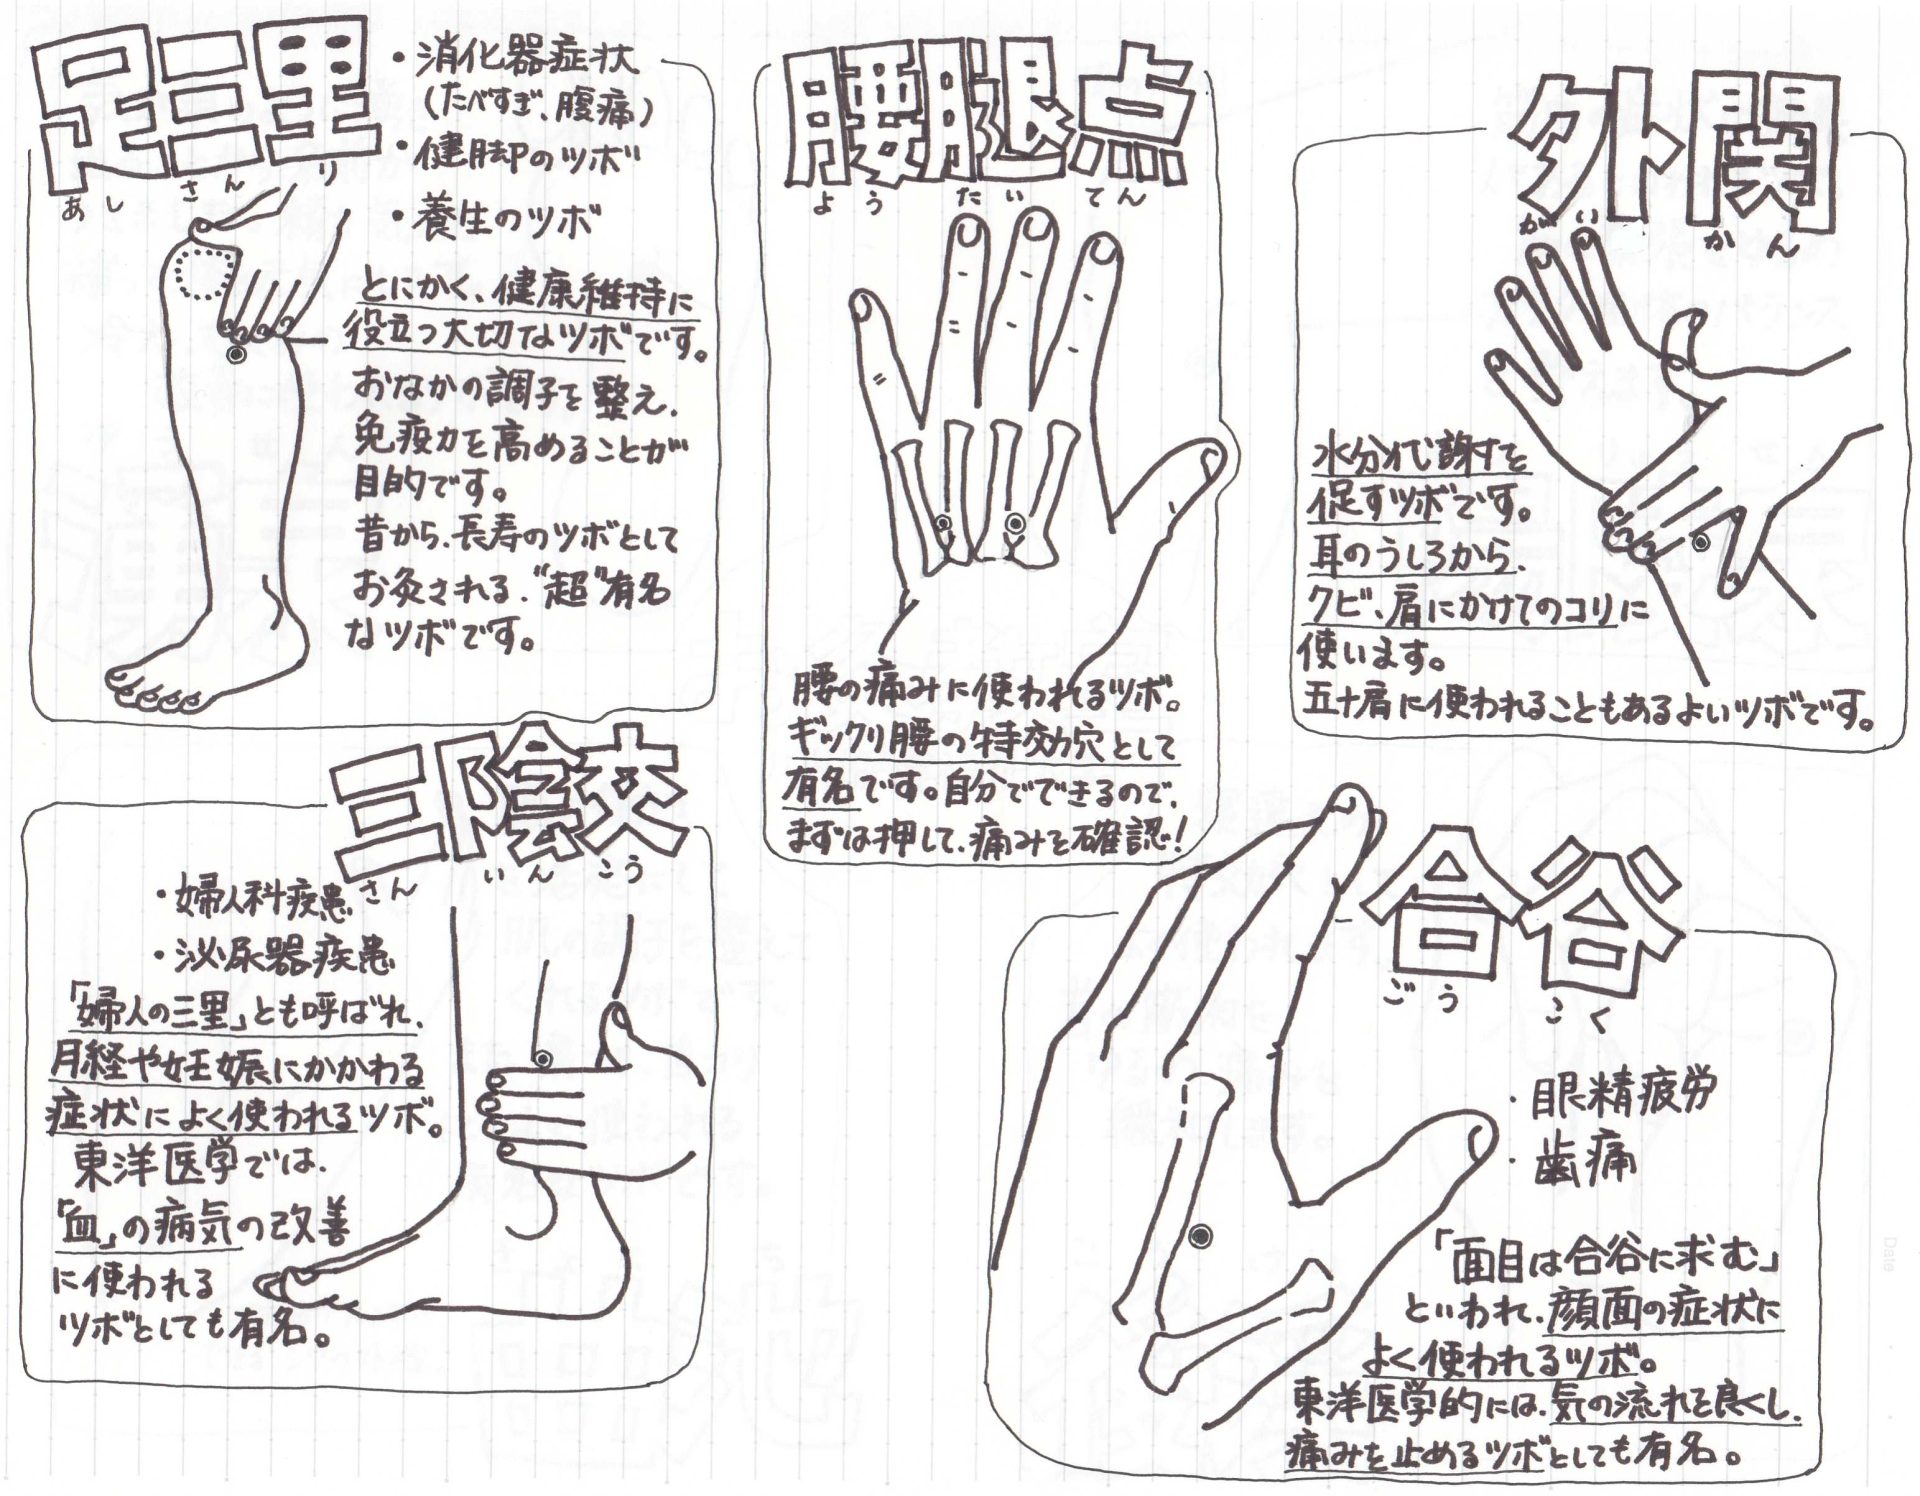 足三里
あしさんり
・消化器症状
(たべすぎ、腹痛)
・健脚のツボ
・養生のツボ
とにかく、健康維持に
役立つ大切なツボです。
おなかの調子を整え、
免疫力を高めることが
目的です。
昔から、長寿のツボとして
お灸される、"超"有名
なツボです。
腰腿点
ようたいてん
腰の痛みに使われるツボ。
ギックリ腰の特効穴として
有名です。自分でできるので、
まずは押して、痛みを確認!
外関
がいかん
水分代謝を
促すツボです。
耳のうしろから、
クビ、肩にかけてのコリに
使います。
五十肩に使われることもあるよいツボです。
三陰交
さんいんこう
・婦人科疾患
・泌尿器疾患
「婦人の三里」とも呼ばれ、
月経や妊娠にかかわる
症状によく使われるツボ。
東洋医学では、
「血」の病気の改善
に使われる
ツボとしても有名。
合谷
ごうこく
・眼精疲労
・歯痛
「面目は合谷に求む」
といわれ、顔面の症状に
よく使われるツボ。
東洋医学的には、気の流れを良くし、
痛みを止めるツボとしても有名。
Date